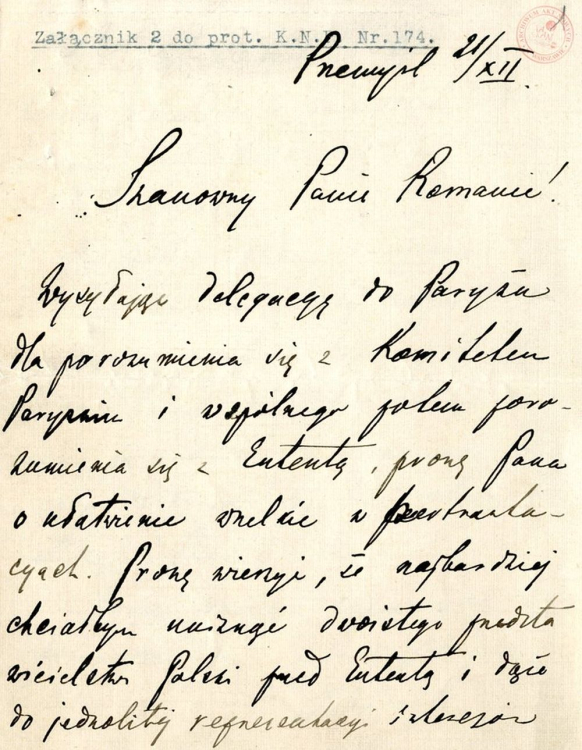 Załącznik 2 do prot. K.N.P. Nr.174.
Przemyśl 21/XII.
Szanowny Panie Romanie!
Wysyłając delegację do Paryża
dla porozumienia się z Komitetem
Paryskim i wspólnego potem poro-
zumienia się z Ententą, proszę Pana
o ułatwienie wszelkie w pertrakta-
cyach. Proszę wierzyć, że najbardziej
chciałbym uniknąć dwoistego przedsta
wicielstwa Polski przed Ententą i dążę
do jednolitej reprezentacyi interesów